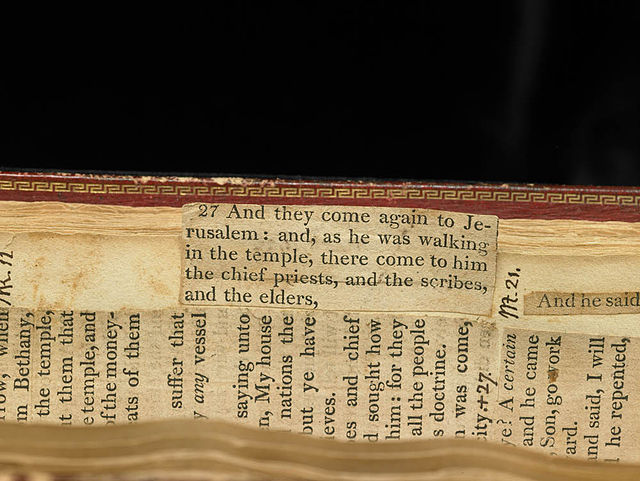 27 And they come again to Je-
rusalem: and, as he was walking
in the temple, there come to him
the chief priests, and the scribes,
and the elders,
Mt. 21.
And he said
when
m Bethany,
the temple,
t them that
e temple, and
of the money-
ats of them
suffer that
any vessel
saying unto
n, My house
nations the
out ye have
eves.
es and chief
d sought how
him: for they
all the people
s doctrine.
n was come,
ity.+27.
ye? A certain
and he came
Son, go work
ard.
and said, I will
he repented,